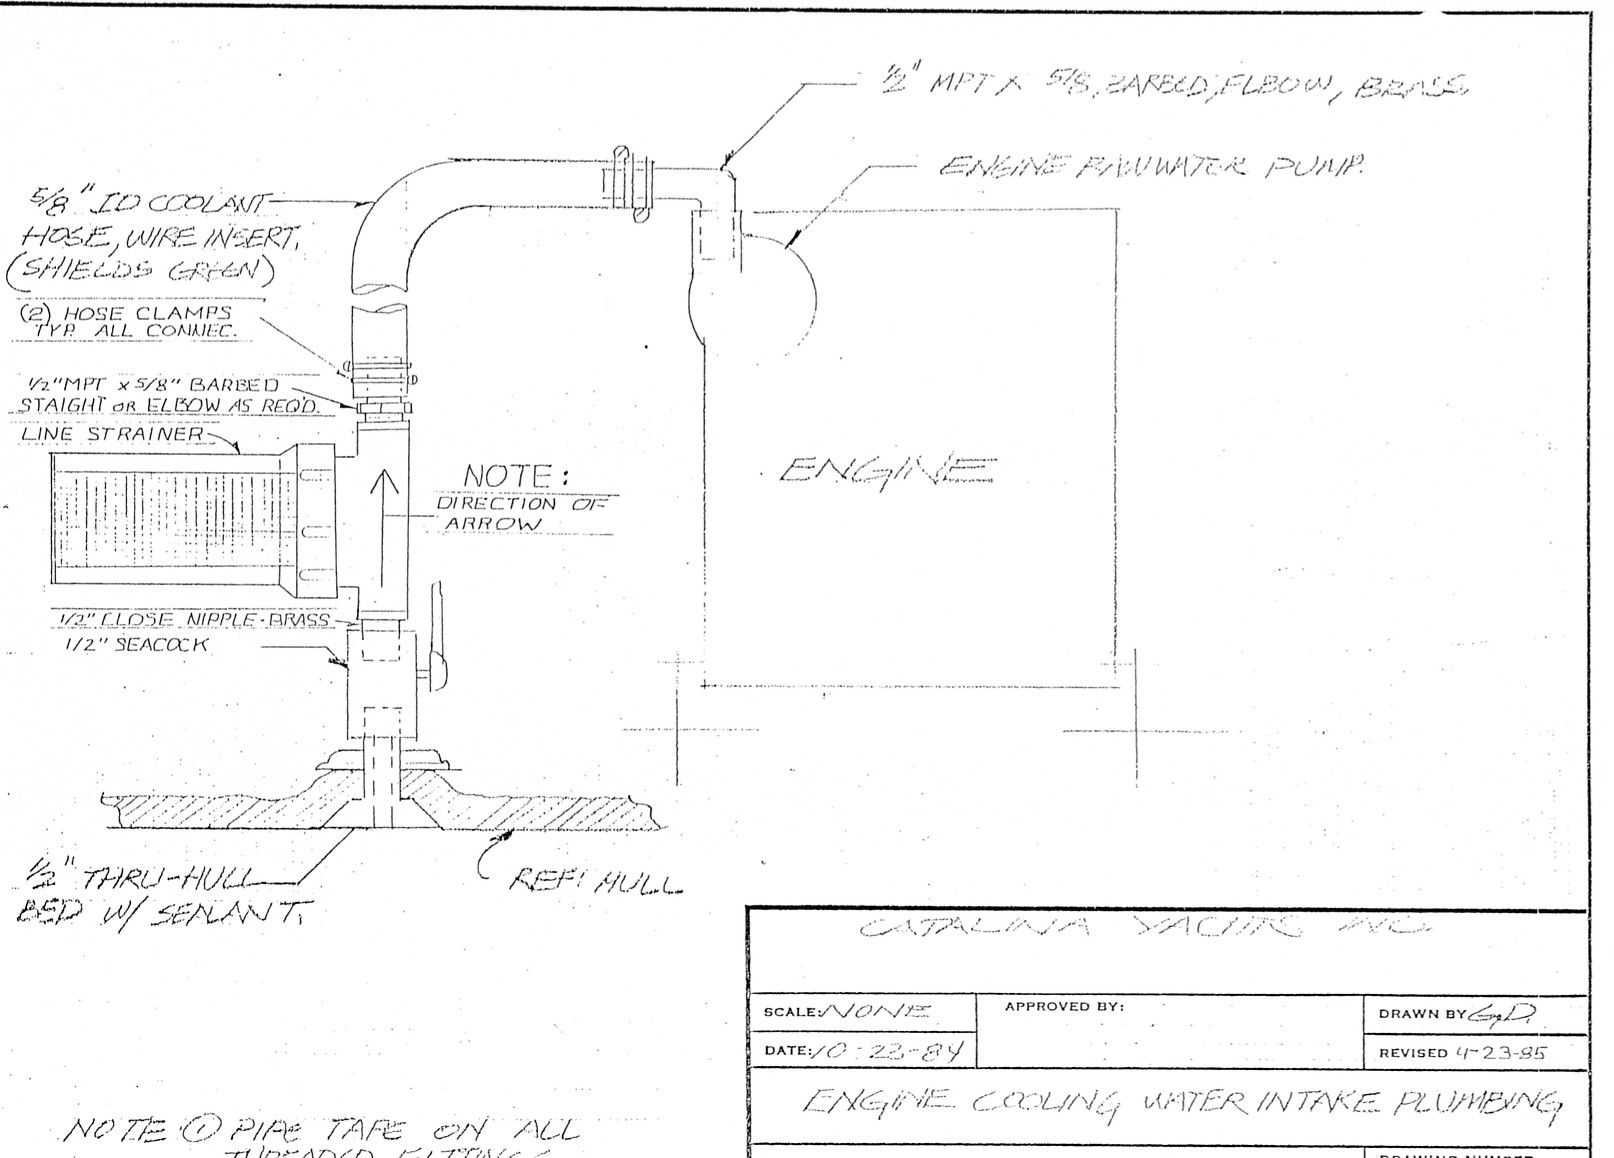 1/2" MPT X 5/8, BARBED, ELBOW, BRASS
ENGINE RAWWATER PUMP.
5/8" ID COOLANT
HOSE, WIRE INSERT,
(SHIELDS GREEN)
(2) HOSE CLAMPS
TYP. ALL CONNEC.
1/2" MPT x 5/8" BARBED
STAIGHT OR ELBOW AS REQ'D.
LINE STRAINER
NOTE:
DIRECTION OF
ARROW
ENGINE
1/2" CLOSE NIPPLE-BRASS
1/2" SEACOCK
1/2" THRU-HULL
BED W/ SEALANT.
REF: HULL
CATALINA YACHTS INC.
SCALE: NONE
APPROVED BY:
DRAWN BY G.D.
DATE: 10-23-84
REVISED 4-23-85
ENGINE COOLING WATER INTAKE PLUMBING
NOTE ① PIPE TAPE ON ALL
THREADED FITTINGS
DRAWING NUMBER